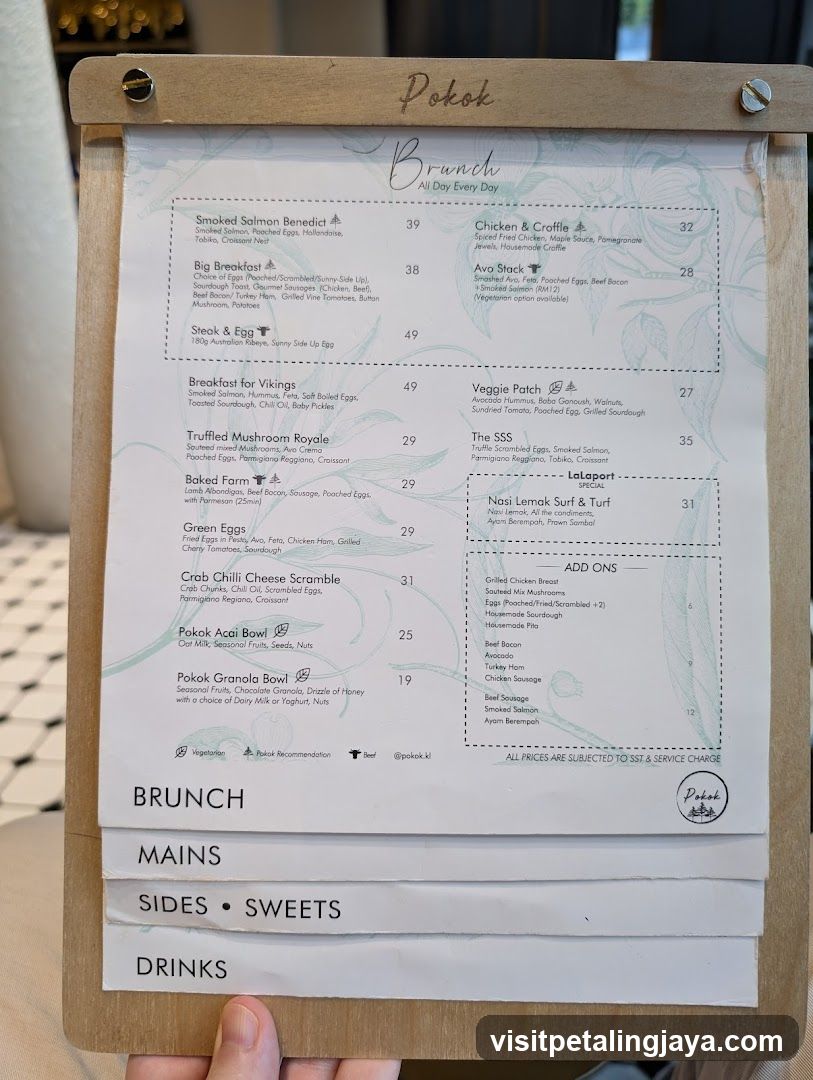 Pokok
Brunch
All Day Every Day
Smoked Salmon Benedict 39
Smoked Salmon, Poached Eggs, Hollandaise,
Tobiko, Croissant Nest
Big Breakfast 38
Choice of Eggs (Poached/Scrambled/Sunny-Side Up),
Sourdough Toast, Gourmet Sausages (Chicken, Beef),
Beef Bacon/ Turkey Ham, Grilled Vine Tomatoes, Button
Mushroom, Potatoes
Steak & Egg 49
180g Australian Ribeye, Sunny Side Up Egg
Chicken & Croffle 32
Spiced Fried Chicken, Maple Sauce, Pomegranate
Jewels, Housemade Croffle
Avo Stack 28
Smashed Avo, Feta, Poached Eggs, Beef Bacon
+Smoked Salmon (RM12)
(Vegetarian option available)
Breakfast for Vikings 49
Smoked Salmon, Hummus, Feta, Soft Boiled Eggs,
Toasted Sourdough, Chili Oil, Baby Pickles
Truffled Mushroom Royale 29
Sauteed mixed Mushrooms, Avo Crema
Poached Eggs, Parmigiano Reggiano, Croissant
Baked Farm 29
Lamb Albondigas, Beef Bacon, Sausage, Poached Eggs,
with Parmesan (25min)
Green Eggs 29
Fried Eggs in Pesto, Avo, Feta, Chicken Ham, Grilled
Cherry Tomatoes, Sourdough
Crab Chilli Cheese Scramble 31
Crab Chunks, Chili Oil, Scrambled Eggs,
Parmigiano Regiano, Croissant
Pokok Acai Bowl 25
Oat Milk, Seasonal Fruits, Seeds, Nuts
Pokok Granola Bowl 19
Seasonal Fruits, Chocolate Granola, Drizzle of Honey
with a choice of Dairy Milk or Yoghurt, Nuts
Veggie Patch 27
Avocado Hummus, Baba Ganoush, Walnuts,
Sundried Tomato, Poached Egg, Grilled Sourdough
The SSS 35
Truffle Scrambled Eggs, Smoked Salmon,
Parmigiano Reggiano, Tobiko, Croissant
LaLaport
SPECIAL
Nasi Lemak Surf & Turf 31
Nasi Lemak, All the condiments,
Ayam Berempah, Prawn Sambal
ADD ONS
Grilled Chicken Breast
Sauteed Mix Mushrooms
Eggs (Poached/Fried/Scrambled +2) 6
Housemade Sourdough
Housemade Pita
Beef Bacon
Avocado
Turkey Ham 9
Chicken Sausage
Beef Sausage
Smoked Salmon 12
Ayam Berempah
Vegetarian Pokok Recommendation Beef @pokok.kl
ALL PRICES ARE SUBJECTED TO SST & SERVICE CHARGE
BRUNCH
Pokok
MAINS
SIDES • SWEETS
DRINKS
visitpetalingjaya.com